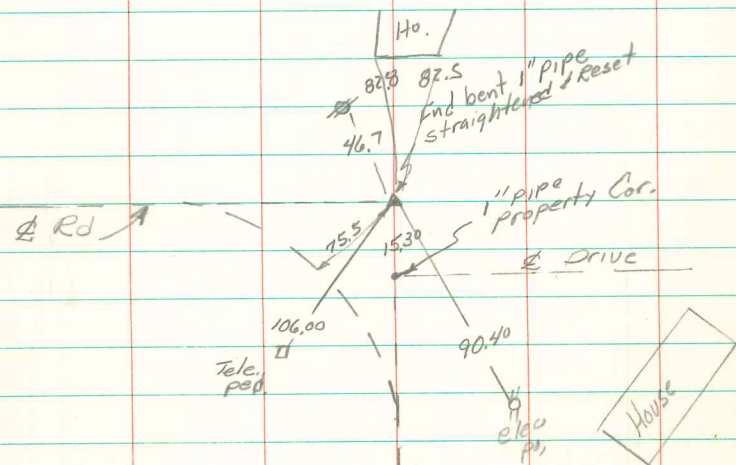 Ho.
82.8 82.5
Fnd bent 1" pipe
straightened & Reset
46.7
1" pipe
property Cor.
℄ Rd
75.5
15.30
℄ Drive
106.00
90.40
Tele.
ped.
House
elec